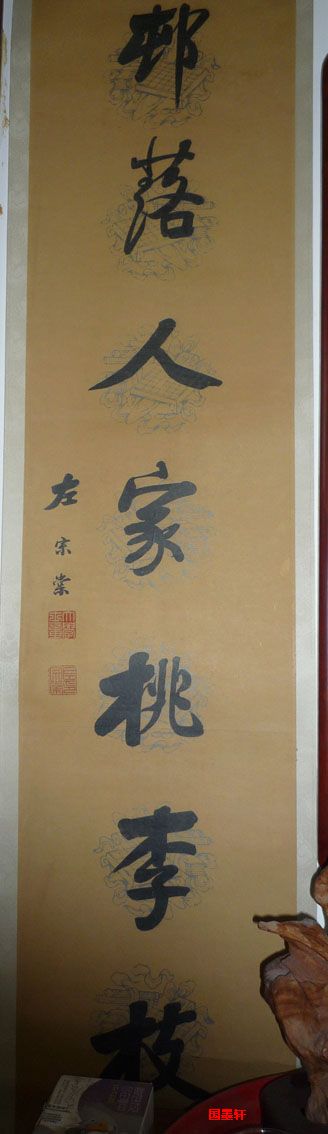 邨落人家桃李枝
左宗棠
国墨轩